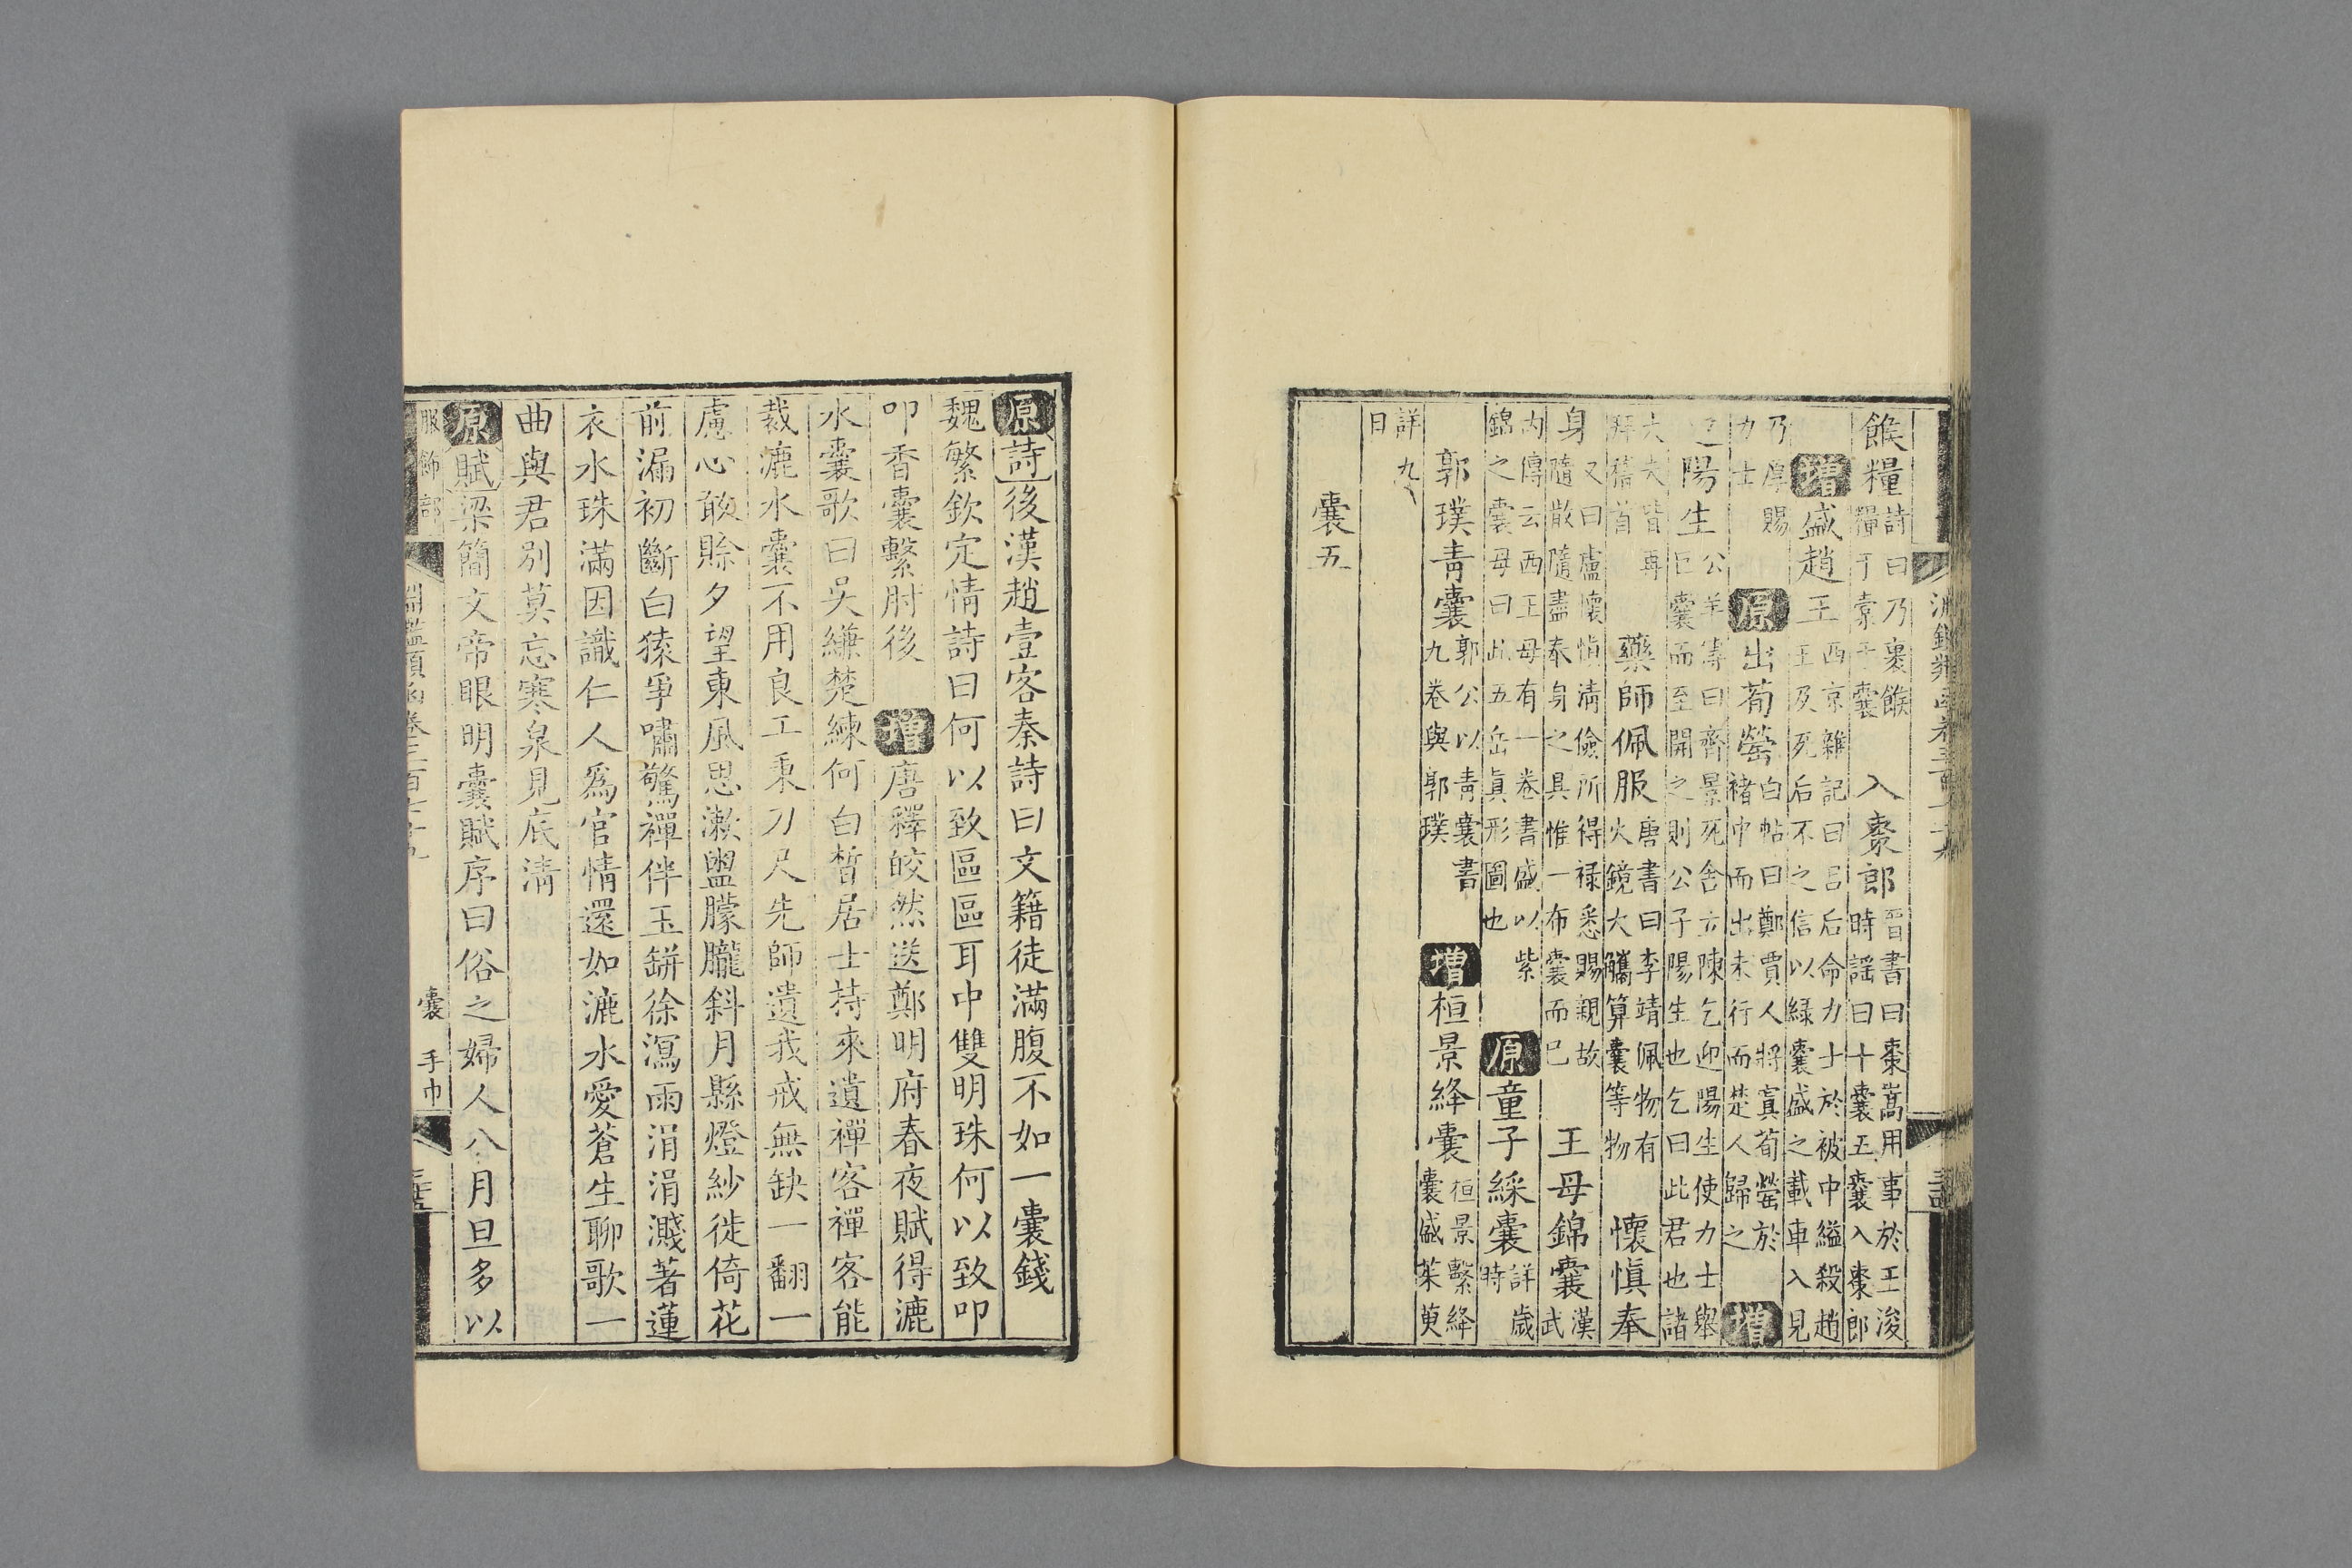 餱糧詩曰乃裹餱糧于橐于囊 入棗郎晉書曰棗嵩用事於王浚時謡曰十囊五囊入棗郎
增盛趙王西京雜記曰吕后命力士於被中縊殺趙王及死后不之信以緑囊盛之載車入見
乃厚賜力士 原出荀罃白帖曰鄭賈人將寘荀罃於褚中而出未行而楚人歸之 增
之陽生公羊傳曰齊景死舍立陳乞迎陽生使力士舉巨囊而至開之則公子陽生也乞曰此君也諸
大夫皆再拜稽首 藥師佩服唐書曰李靖佩物有火鏡大觿算囊等物 懷愼奉
身又曰盧懷愼清儉所得禄悉賜親故隨散隨盡奉身之具惟一布囊而已 王母錦囊漢武
内傳云西王母有一卷書盛以紫錦之囊母曰此五岳眞形圖也 原童子綵囊詳歲時
郭璞青囊郭公以青囊書九卷與郭璞 增桓景絳囊桓景繫絳囊盛茱萸
詳九日
囊五
原詩後漢趙壹客秦詩曰文籍徒滿腹不如一囊錢
魏繁欽定情詩曰何以致區區耳中雙明珠何以致叩
叩香囊繫肘後 增唐釋皎然送鄭明府春夜賦得漉
水囊歌曰吳縑楚練何白晳居士持來遺禪客禪客能
裁漉水囊不用良工秉刀尺先師遺我戒無缺一翻一
慮心敢賖夕望東風思漱盥朦朧斜月縣燈紗徙倚花
前漏初斷白猿爭嘯驚禪伴玉缾徐瀉雨涓涓濺著蓮
衣水珠滿因識仁人爲官情還如漉水愛蒼生聊歌一
曲與君别莫忘寒泉見底清
原賦梁簡文帝眼明囊賦序曰俗之婦人八月旦多以
服飾部 淵鑑類函卷三百七十九 囊 手巾